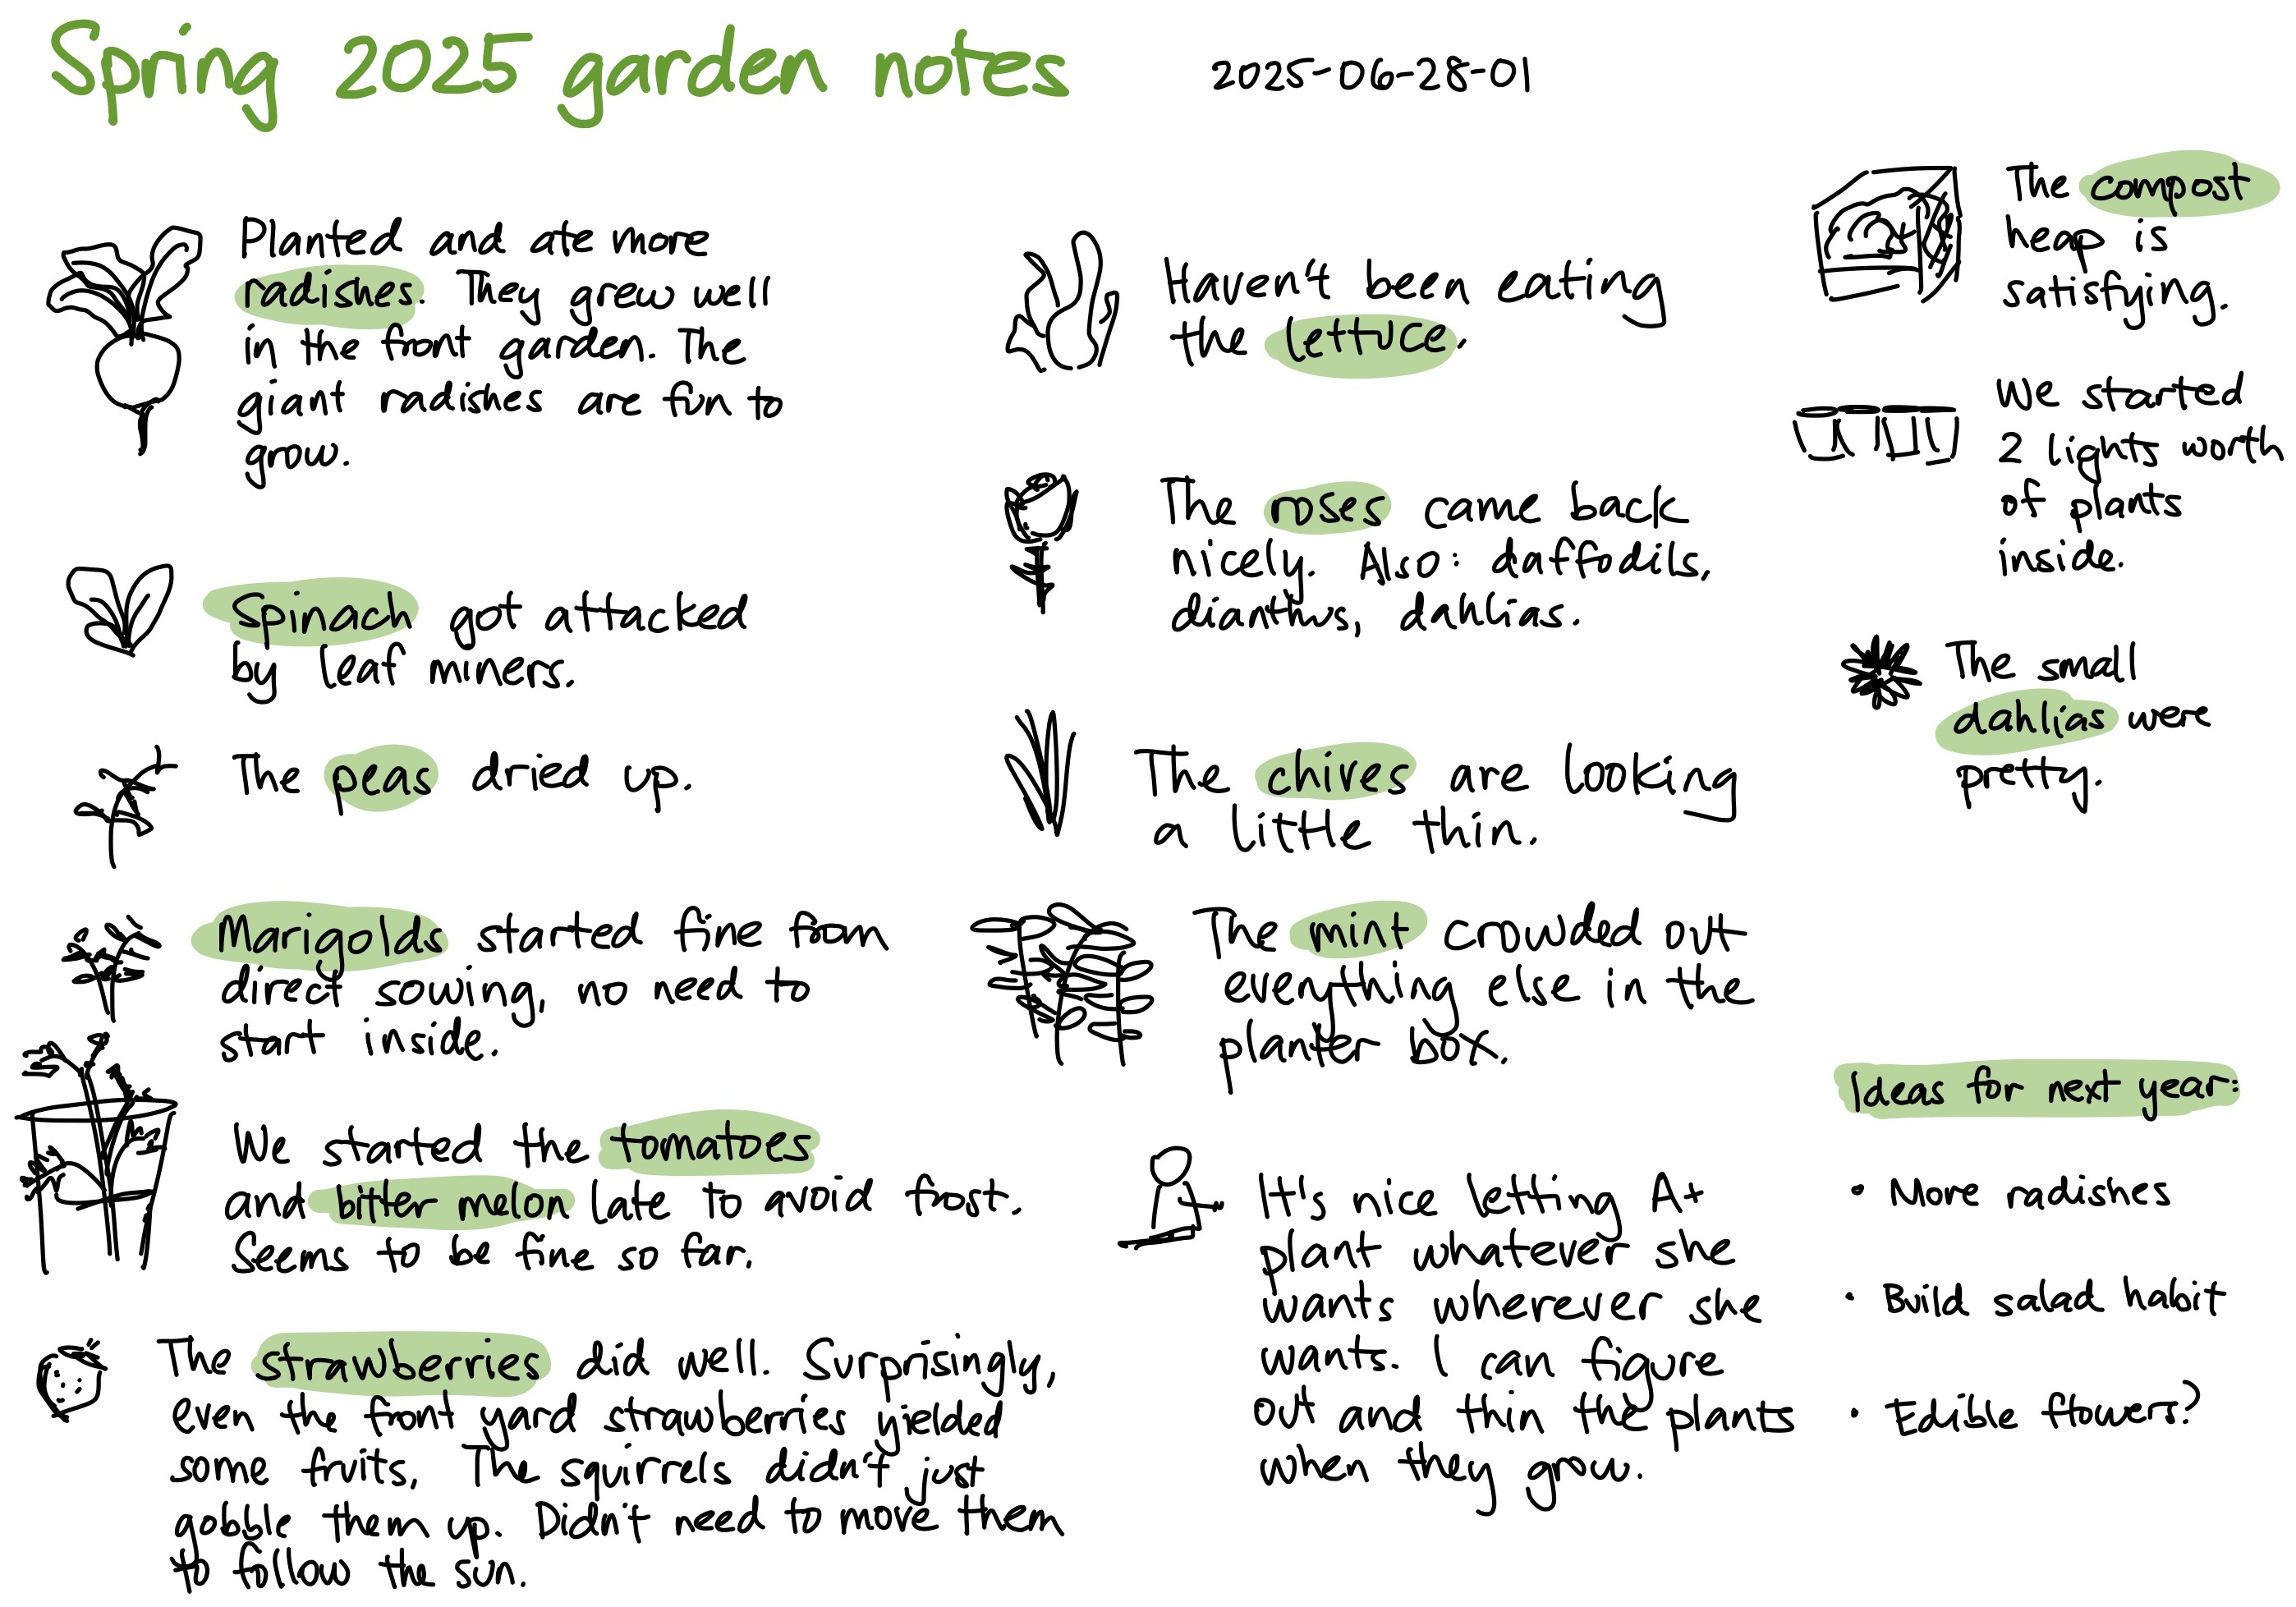 Spring 2025 garden notes
2025-06-28-01
Planted and ate more
radishes. They grew well
in the front garden. The
giant radishes are fun to
grow.
Spinach got attacked
by leaf miners.
The peas dried up.
Marigolds started fine from
direct sowing, no need to
start inside.
We started the tomatoes
and bitter melon late to avoid frost.
Seems to be fine so far.
The strawberries did well. Surprisingly,
even the front yard strawberries yielded
some fruits. The squirrels didn't just
gobble them up. Didn't need to move them
to follow the sun.
Haven't been eating
the lettuce.
The roses came back
nicely. Also: daffodils,
dianthus, dahlias.
The chives are looking
a little thin.
The mint crowded out
everything else in the
planter box.
It's nice letting A+
plant whatever she
wants wherever she
wants. I can figure
out and thin the plants
when they grow.
The compost
heap is
satisfying.
We started
2 lights worth
of plants
inside.
The small
dahlias were
pretty.
Ideas for next year:
• More radishes
• Build salad habit
• Edible flowers?